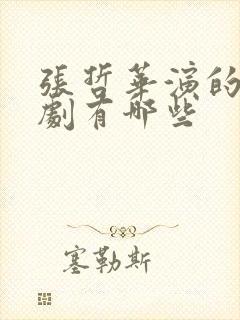 張哲華演的
劇有哪些
塞勒斯